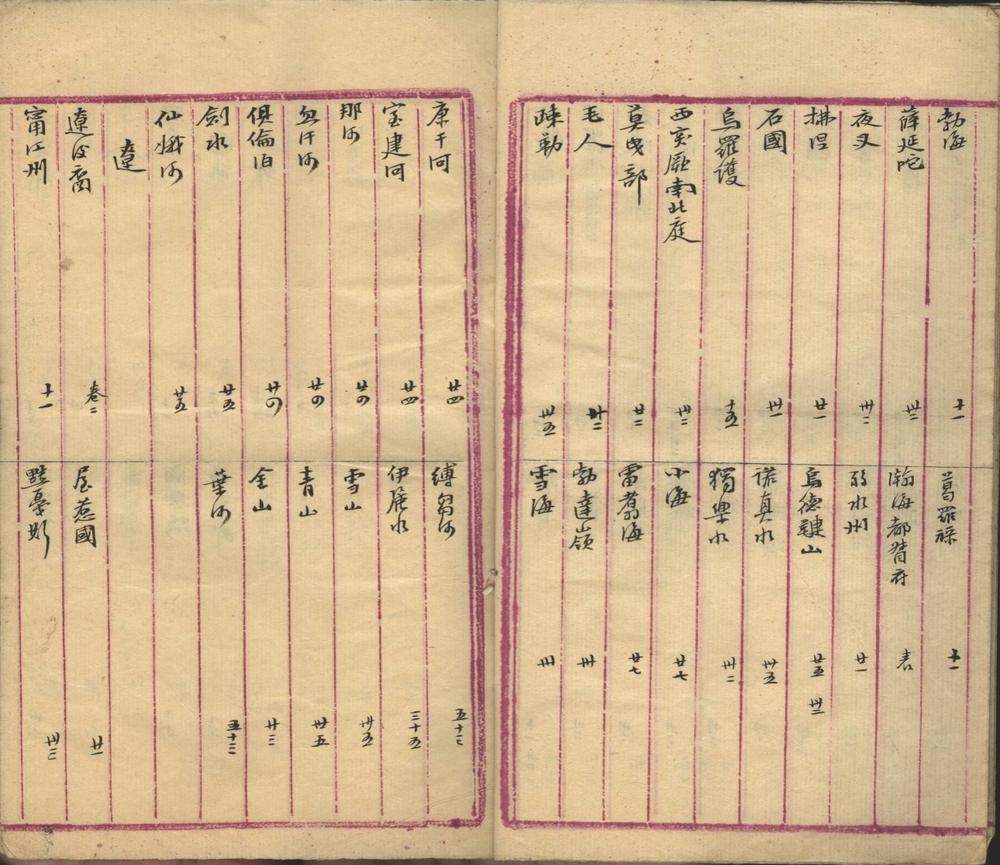 勃海 十一
薛延陀 卅二
夜叉 卅二
拂涅 廿一
石國 卅一
烏羅護 十五
西突厥南北庭 卅二
莫曳部 廿二
毛人 卅二
疎勒 卅五
葛羅祿 十一
瀚海都督府 表
弱水州 廿一
烏德鞬山 廿五 卅二
諾真水 卅五
獨樂水 卅二
小海 廿七
雷翥海 廿七
勃達嶺 卅
雪海 卅
康干河 廿四
室建河 廿四
那河 廿四
忽汗河 廿四
俱倫泊 廿四
劍水 廿五
仙娥河 廿五
遼
遼 卷二
甯江州 十一
縛芻河 五十二
伊麗水 三十五
雪山 卅五
青山 卅五
金山 廿三
葉河 五十三
屋惹國 廿一
黠戛斯 卅三